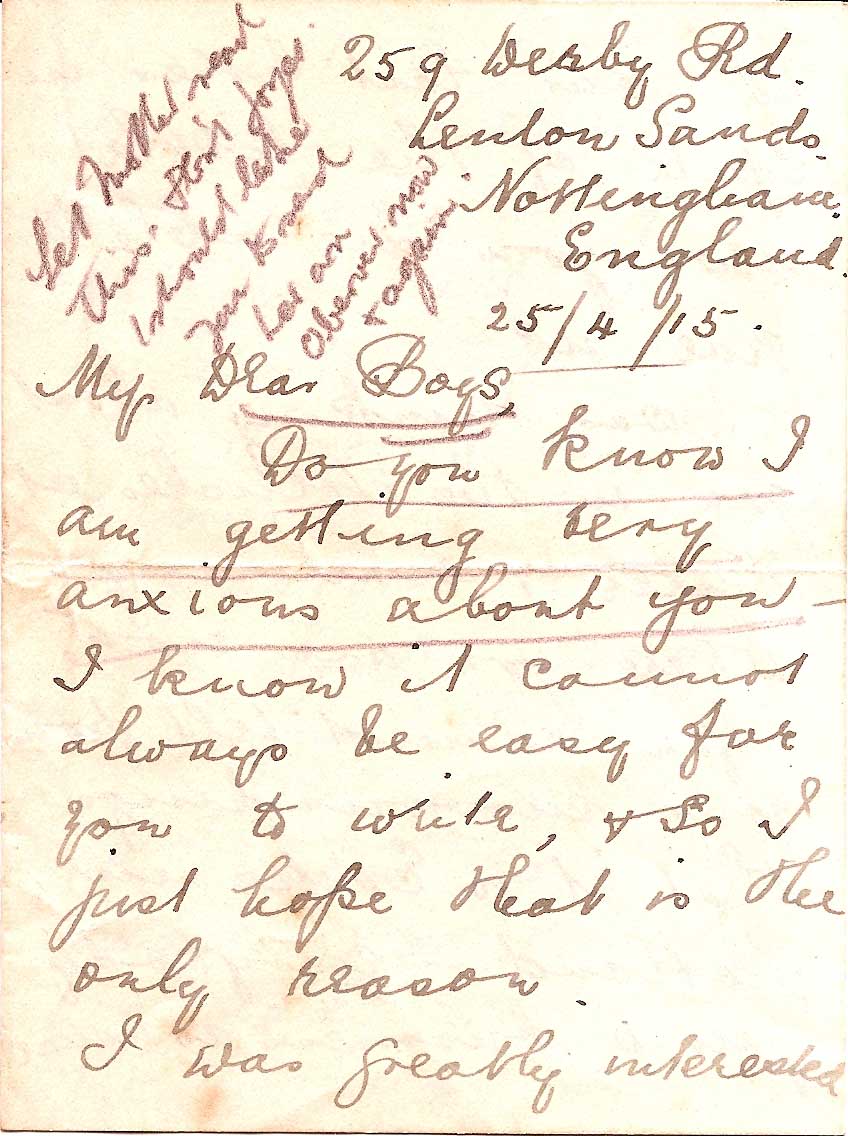 259 Derby Rd.
Lenton Sands.
Nottingham.
England.
25/4/15.
Let Mother read
this. Don't forget
I should like
you to send
her an
Observer now
& again.
My Dear Boys,
Do you know I
am getting very
anxious about you –
I know it cannot
always be easy for
you to write, & so I
just hope that is the
only reason.
I was greatly interested